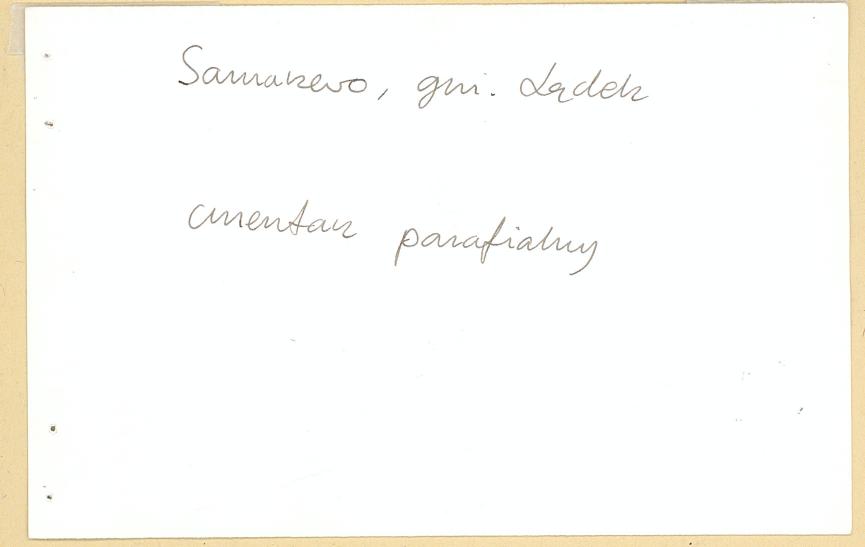 Samarzewo, gm. Lądek
cmentarz parafialny